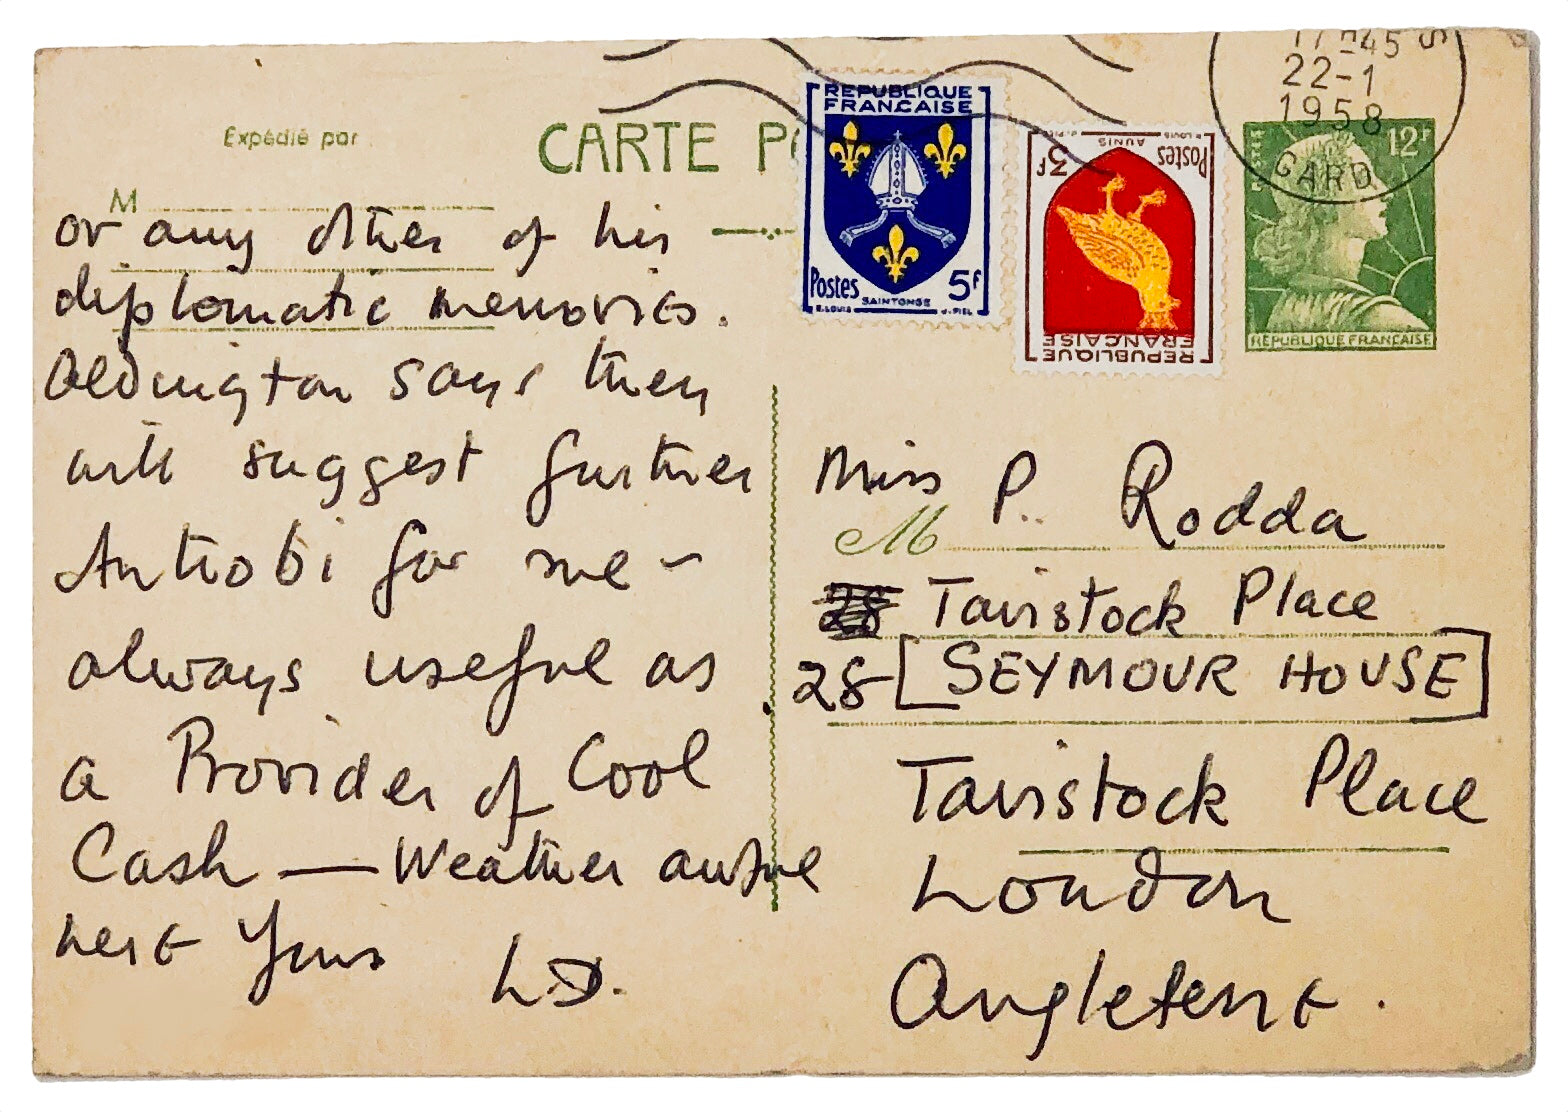 17H-45 S
22-1
1958
GARD
Expédié par
CARTE P
M
REPUBLIQUE
FRANCAISE
Postes
SAINTONGE
5F
R.LOUIS J.PIEL
REPUBLIQUE
FRANCAISE
Postes
AUNIS
3F
R.LOUIS J.PIEL
12F
REPUBLIQUE FRANÇAISE
or any other of his
diplomatic memories.
Aldington says they
will suggest further
Antrobi for me –
always useful as
a Provider of Cool
Cash — Weather awful
here Yours L.D.
Miss P. Rodda
M
28 Tavistock Place
28 [SEYMOUR HOUSE]
Tavistock Place
London
Angleterre.